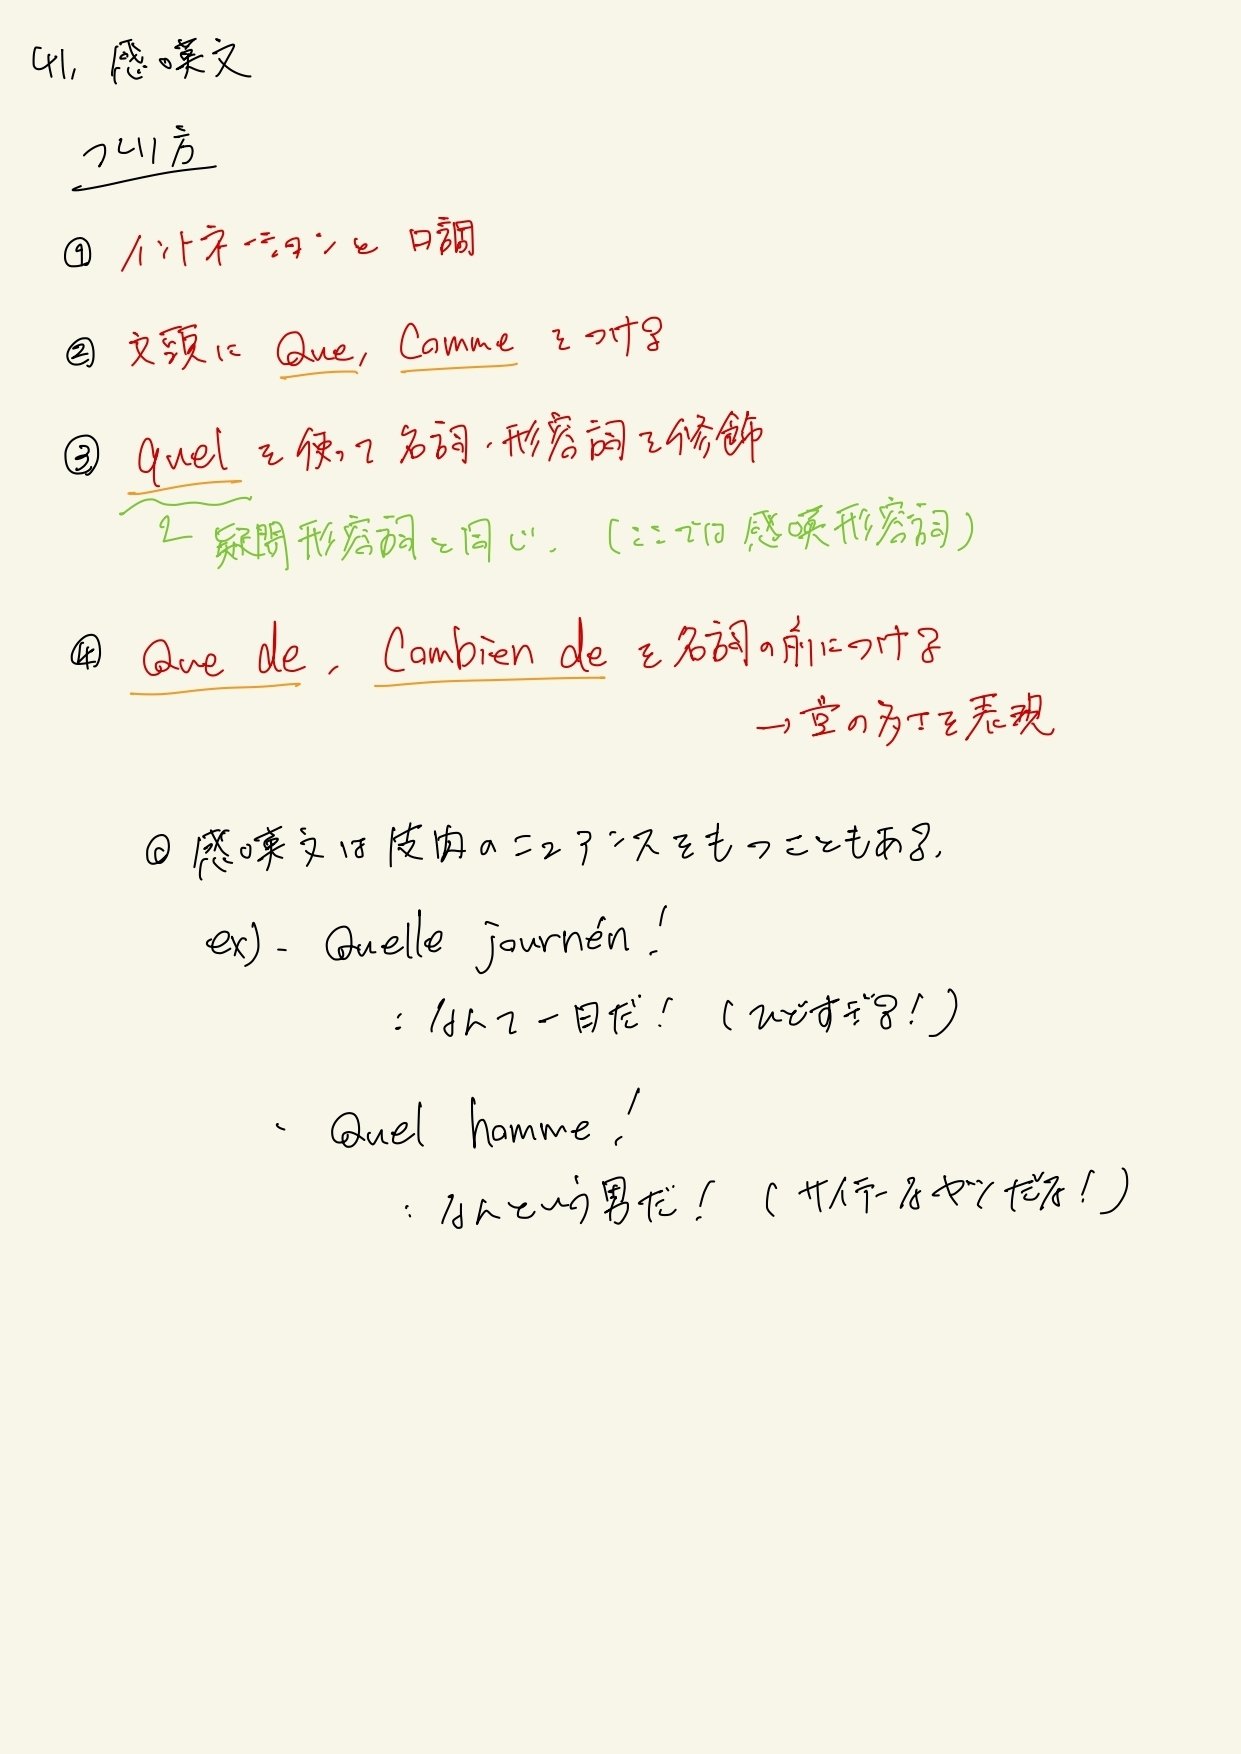 41. 感嘆文
つくり方
① イントネーションと口調
② 文頭に Que, Comme をつける
③ quel を使って名詞・形容詞を修飾
疑問形容詞と同じ. (ここでは感嘆形容詞)
④ Que de, Combien de を名詞の前につける
→ 量の多さを表現
◎ 感嘆文は皮肉のニュアンスをもつこともある.
ex) - Quelle journén!
: なんて一日だ! (ひどすぎる!)
- Quel homme!
: なんという男だ! (サイテーなヤツだな!)